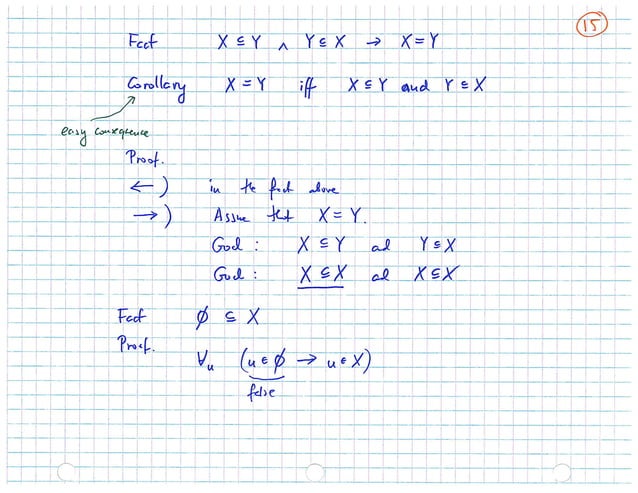 15
Fact X ⊆ Y ∧ Y ⊆ X → X = Y
Corollary X = Y iff X ⊆ Y and Y ⊆ X
easy consequence
Proof.
←) in the fact above
→) Assume that X = Y.
Goal: X ⊆ Y ad Y ⊆ X
Goal: X ⊆ X ad X ⊆ X
Fact ∅ ⊆ X
Proof.
∀u (u ∈ ∅ → u ∈ X)
false